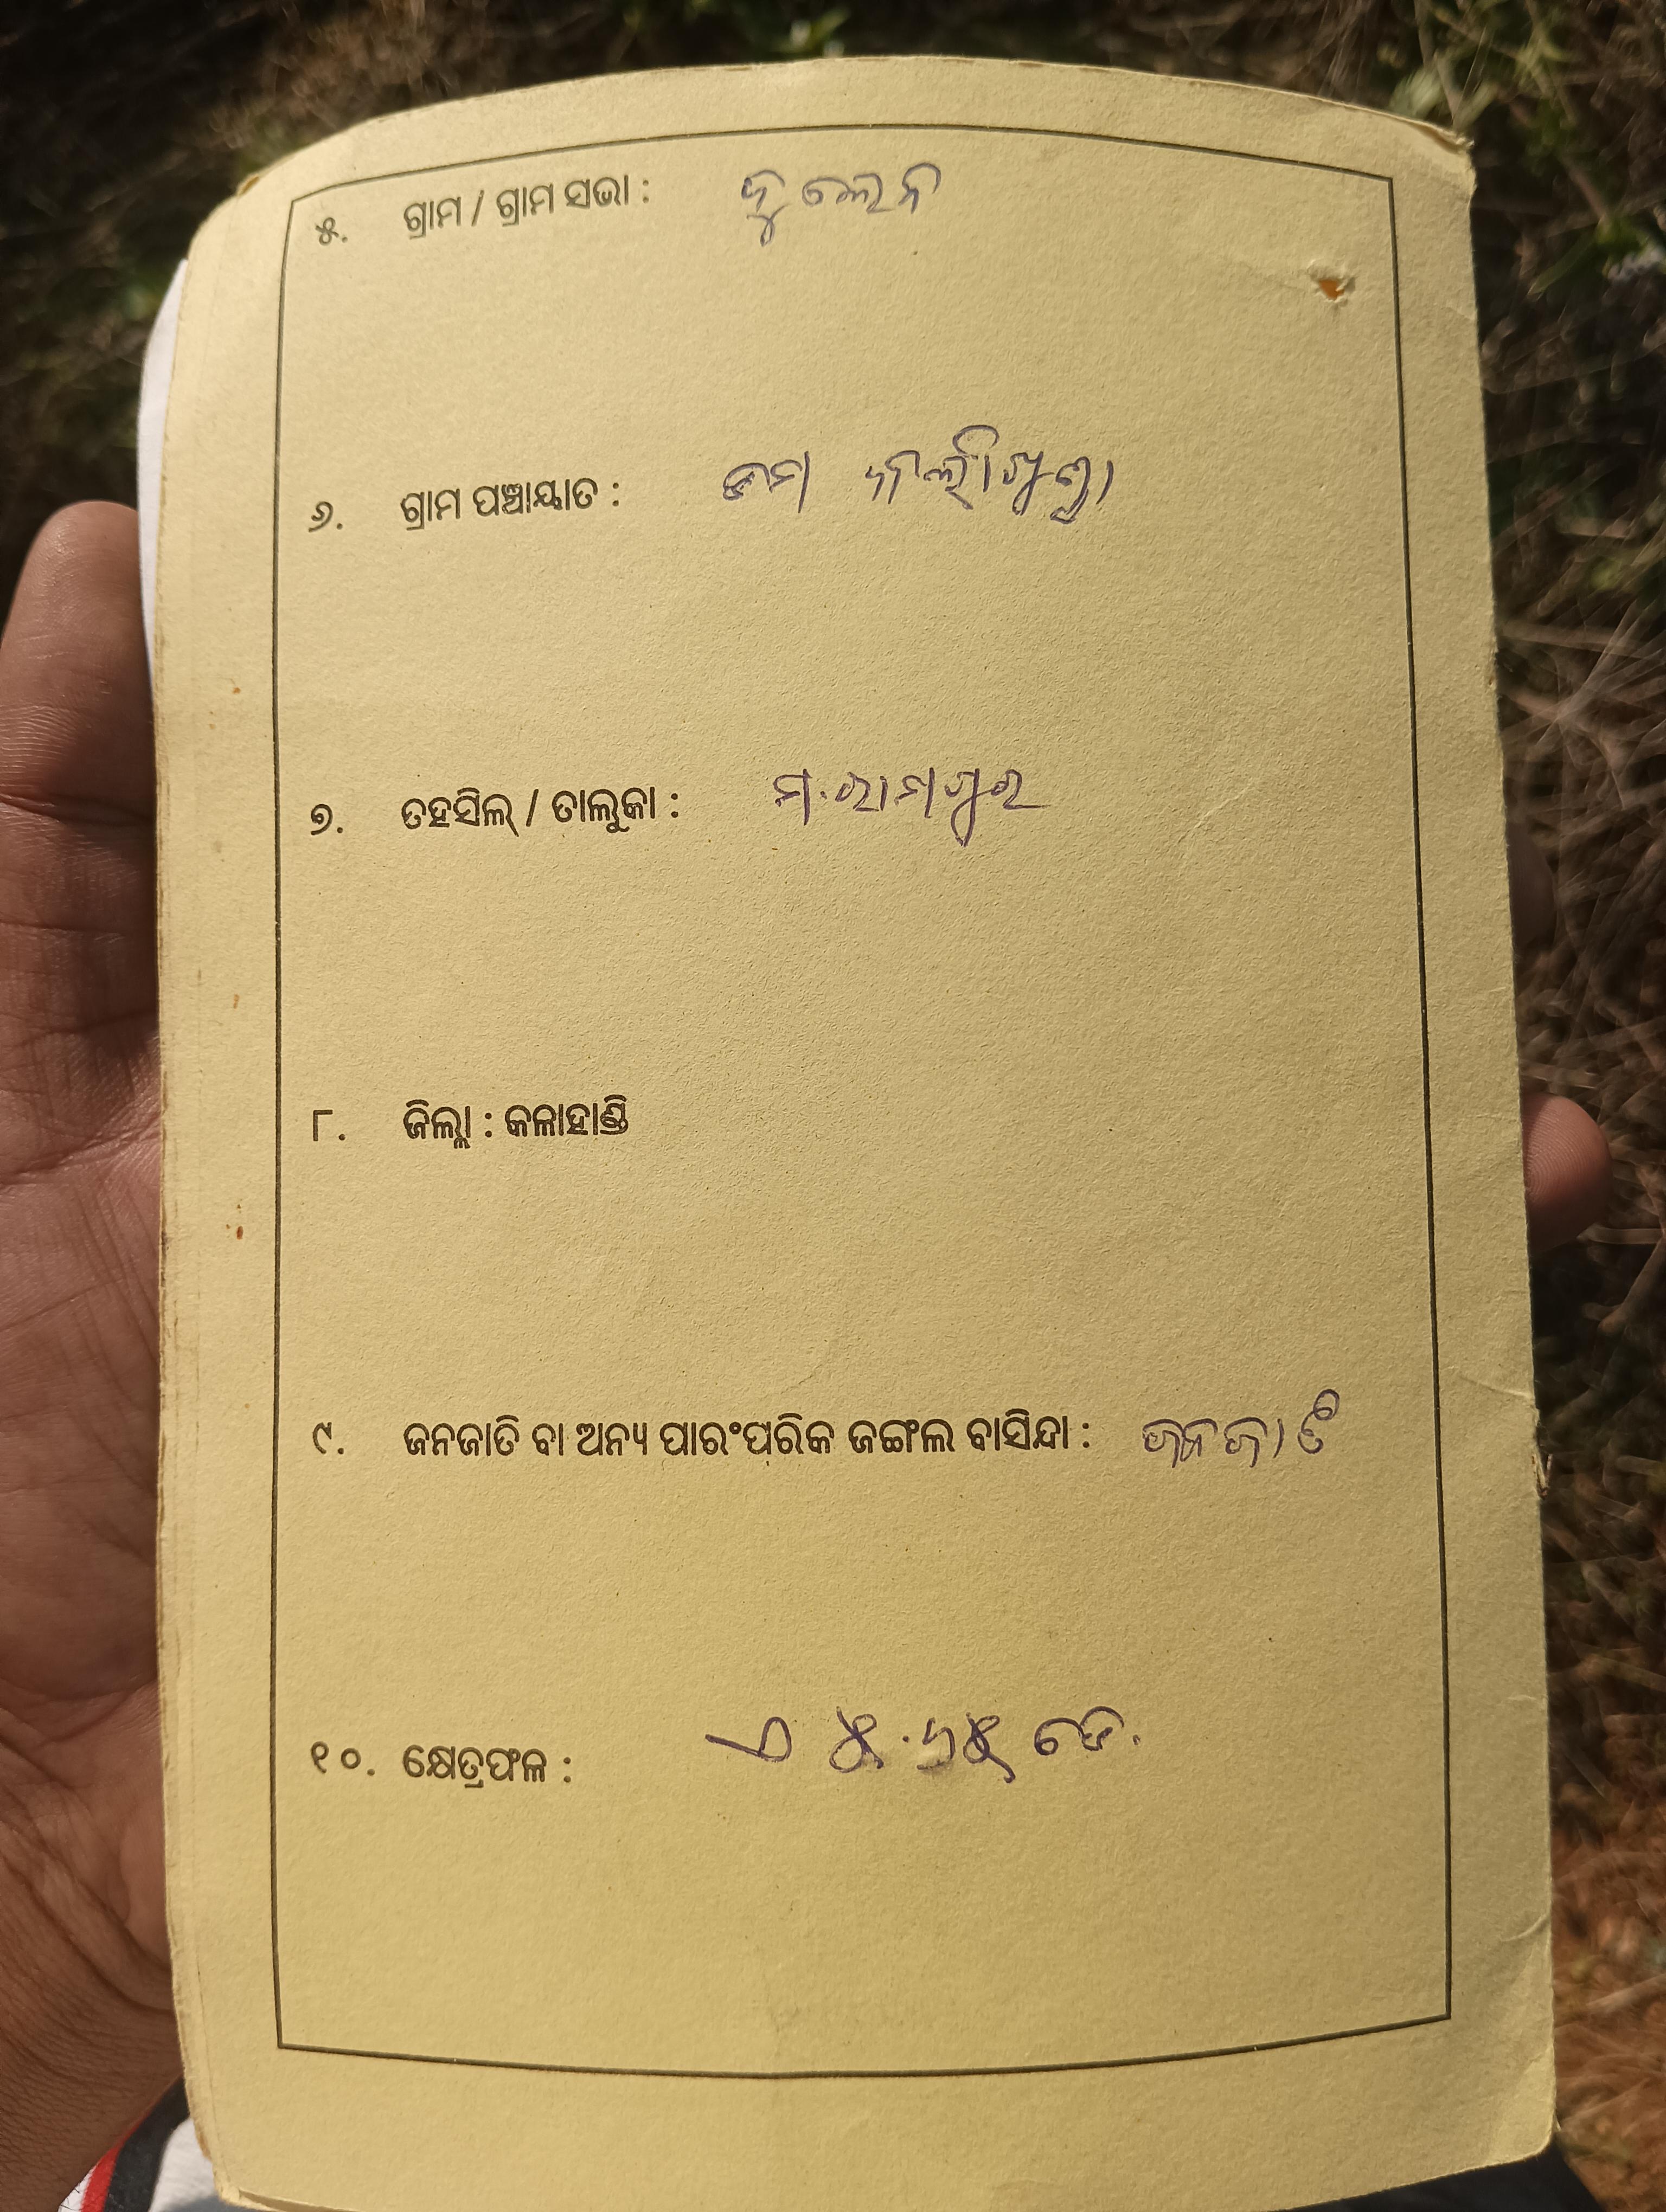 ୫. ଗ୍ରାମ / ଗ୍ରାମ ସଭା : ଦୁଲେନ
୬. ଗ୍ରାମ ପଞ୍ଚାୟାତ :
୭. ତହସିଲ୍ / ତାଲୁକା : ମ.ରାମପୁର
୮. ଜିଲ୍ଲା : କଳାହାଣ୍ଡି
୯. ଜନଜାତି ବା ଅନ୍ୟ ପାରଂପରିକ ଜଙ୍ଗଲ ବାସିନ୍ଦା : ଜନଜାତି
୧୦. କ୍ଷେତ୍ରଫଳ : ଏ ୫.୬୫ ଡେ.